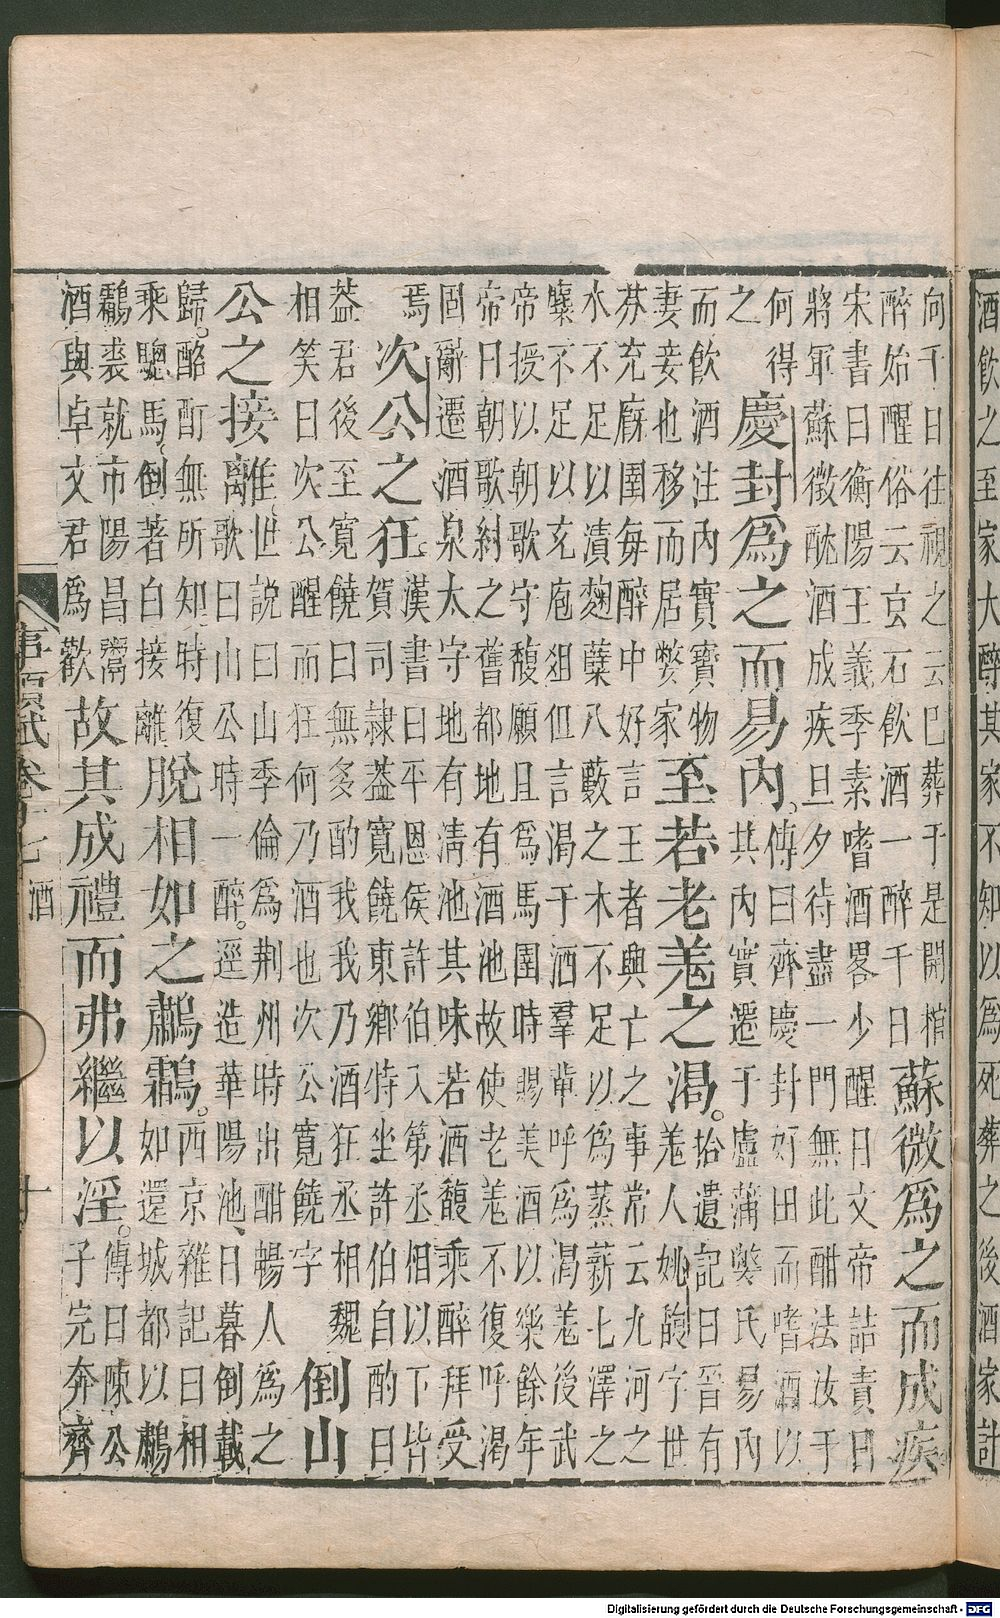 酒飲之至家大醉其家不知以爲死葬之後酒家計
向千日往視之云已葬于是開棺
醉始醒俗云玄石飲酒一醉千日
蘇微爲之而成疾
宋書曰衡陽王義季素嗜酒畧少醒日文帝詰責曰
將軍蘇徵酖酒成疾旦夕待盡一門無此酣法汝于
何得
之
慶封爲之而易內。
傳曰齊慶封好田而嗜酒以
其內實遷于盧蒲嫳氏易內
而飲酒注內實寶物
妻妾也移而居嫳家
至若老羗之渴。
拾遺記曰晉有
羗人姚馥字世
芬充廐圉每醉中好言王者興亡之事常云九河之
水不足以漬麴蘗八藪之木不足以爲蒸薪七澤之
麋不足以充庖俎但言渴于酒羣輩呼爲渴羗後武
帝授以朝歌守馥願且爲馬圉時賜美酒以樂餘年
帝曰朝歌紂之舊都地有酒池故使老羗不復呼渴
固辭遷酒泉太守地有淸池其味若酒馥乘醉拜受
焉
次公之狂。
漢書曰平恩侯許伯入第丞相以下皆
賀司隷葢寬饒東鄉特坐許伯自酌曰
葢君後至寬饒曰無多酌我我乃酒狂丞相魏
相笑曰次公醒而狂何乃酒也次公寬饒字
倒山
公之接離
世說曰山季倫爲荆州時出酣暢人爲之
歌曰山公時一醉。逕造華陽池、日暮倒載
歸。酩酊無所知時復
乘驄馬、倒著白接離
脫相如之鷫鸘。
西京雜記曰相
如還城都以鷫
鸘裘就市陽昌鬻
酒與卓文君爲歡
故其成禮而弗繼以淫。
傳曰陳公
子完奔齊
事類賦 卷十七 酒 十
Digitalisierung gefördert durch die Deutsche Forschungsgemeinschaft - DFG